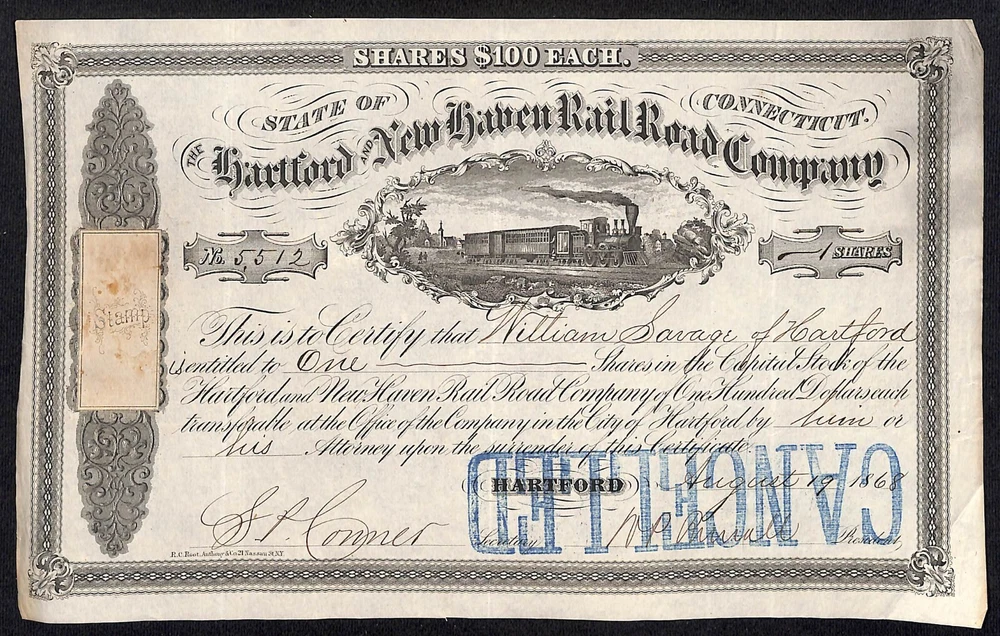 SHARES $100 EACH.
STATE OF CONNECTICUT.
THE Hartford AND New Haven Rail Road Company
No. 5,512
1 SHARES
Stamp
This is to Certify that William Savage of Hartford
is entitled to One Shares in the Capital Stock of the
Hartford and New Haven Rail Road Company of One Hundred Dollars each
transferable at the Office of the Company in the City of Hartford by him or
his Attorney upon the surrender of this Certificate.
HARTFORD August 19 1868
CANCELLED
Secretary President
R.C. Root, Anthony & Co 21 Nassau St. N.Y.